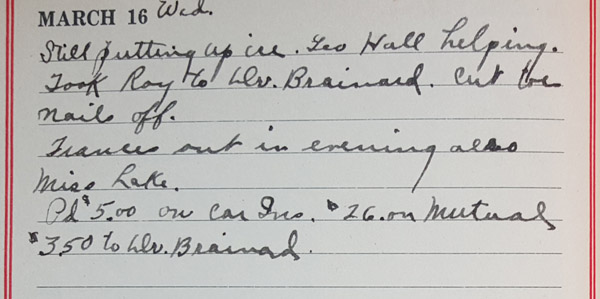 MARCH 16 Wed.
Still putting up ice. Geo Hall helping.
Took Roy to Dr. Brainard. Cut toe
nails off.
Frances out in evening also
Miss Lake.
Pd $5.00 on Car Ins. $26. on Mutual
$3.50 to Dr. Brainard.